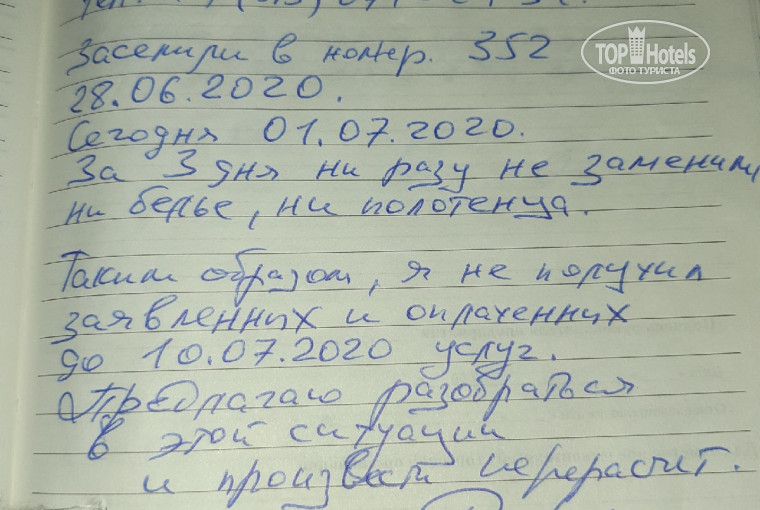 Заселили в номер. 352
28.06.2020.
Сегодня 01.07.2020.
За 3 дня ни разу не заменили
ни белье, ни полотенца.
Таким образом, я не получил
заявленных и оплаченных
до 10.07.2020 услуг.
Предлагаю разобраться
в этой ситуации
и произвести перерасчет.
TOP Hotels
ФОТО ТУРИСТА